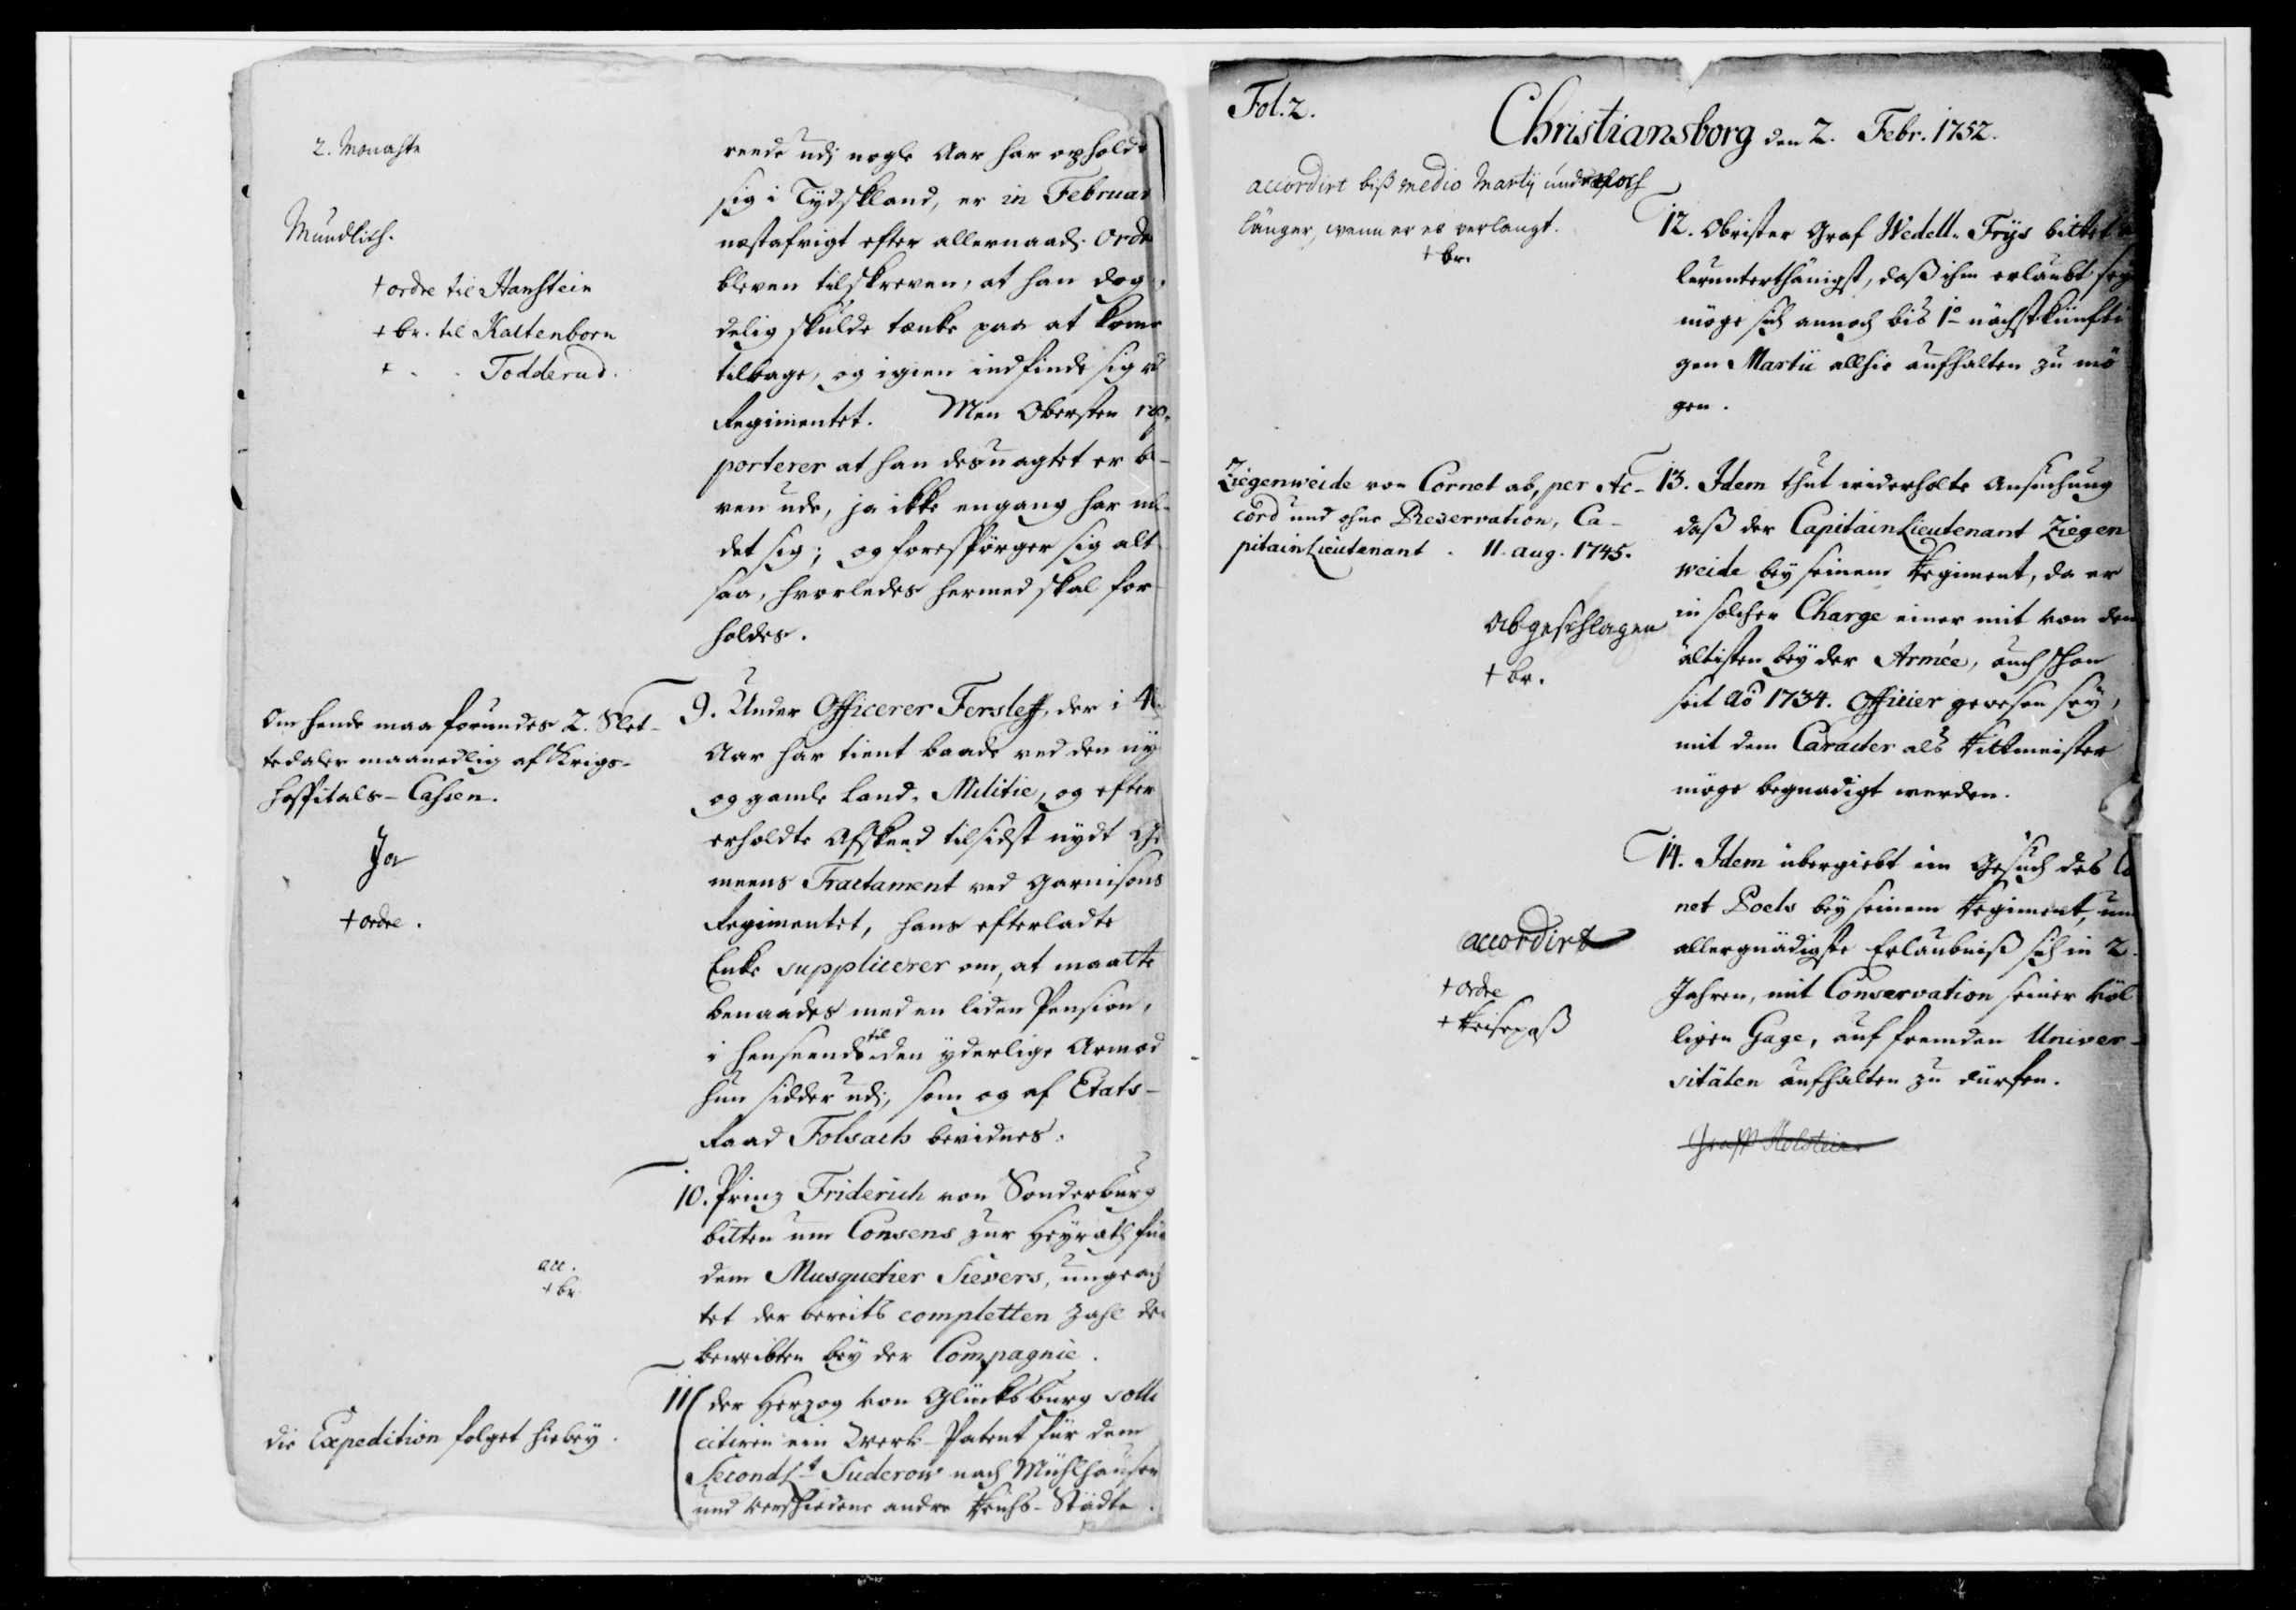 2. Monahte
Mundlich.
+ ordre til Hanstein
+ br. til Kaltenborn
+ - - Todderud.
reede udj nogle Aar har opholdt
sig i Tydskland, er in Februar
næstafvigt efter allernaad. Ordre
bleven tilskreven, at han dog
delig skulde tænke paa at kome
tilbage, og igien indfinde sig v
Regimentet. Men Obersten rap
porterer at han desuagtet er b-
ven ude, ja ikke engang har m-
det sig; og forespörger sig alt
saa, hvorledes hermed skal for
holdes.
Om hende maa forundes 2. Slet-
tedaler maanedlig af Krigs-
hospitals-Cassen.
Ja
+ ordre.
9. Under Officerer Fersleff, der i 4
Aar har tient baade ved den ny
og gamle Land-Militie, og efter
erholdte Afskeed tilsidst nydt Ge
meens Tractament ved Garnisons
Regimentet, hans efterladte
Enke supplicerer om, at maatte
benaades med en liden Pension,
i henseende til den yderlige Armod
hun sidder udj, som og af Etats-
Raad Folsach bevidnes.
acc.
+ br.
10. Prinz Friderich von Sonderburg
bitten um Consens zur Heyrath für
dem Musquetier Sievers, ungeach
tet der bereits completten Zahl der
beweibten bey der Compagnie.
die Expedition folget hiebey.
11 der Herzog von Glücksburg solli
citiren ein Werb-Patent für dem
SecondLt Suderow nach Mühlhausen
und verschiedene andre Reichs-Städte.
Fol. 2.
Christiansborg den 2. Febr. 1752.
accordirt biß medio Martij und noch
länger, wenn er es verlangt.
+ br.
12. Obrister Graf Wedell-Frys bittet a
lerunterthänigst, daß ihm erlaubt sey
möge sich annoch bis 1o nächstkünfti
gen Martii allhie aufhalten zu mö
gen.
Ziegenweide von Cornet ab, per Ac-
cord und ohne Reservation, Ca-
pitainLieutenant. 11. aug. 1745.
Abgeschlagen
+ br.
13. Idem thut widerholte Ansuchung
daß der CapitainLieutenant Ziegen
weide bey seinem Regiment, da er
in solcher Charge einer mit von den
ältesten bey der Armée, auch schon
seit Ao 1734. Officier gewesen sey,
mit dem Caracter als Rittmeister
möge begnadigt werden.
accordirt
+ ordre
+ Reisepaß
14. Idem übergiebt ein Gesuch des Co
net Poels bey seinem Regiment, um
allergnädigste Erlaubniß sich in 2.
Jahren, mit Conservation seiner völ
ligen Gage, auf fremden Univer-
sitäten aufhalten zu dürfen.
Graff Holstein